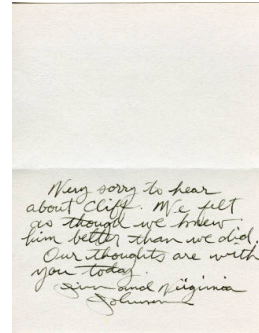 Very sorry to hear
about Cliff. We felt
as though we knew
him better than we did.
Our thoughts are with
you today.
and Virginia
Johnson